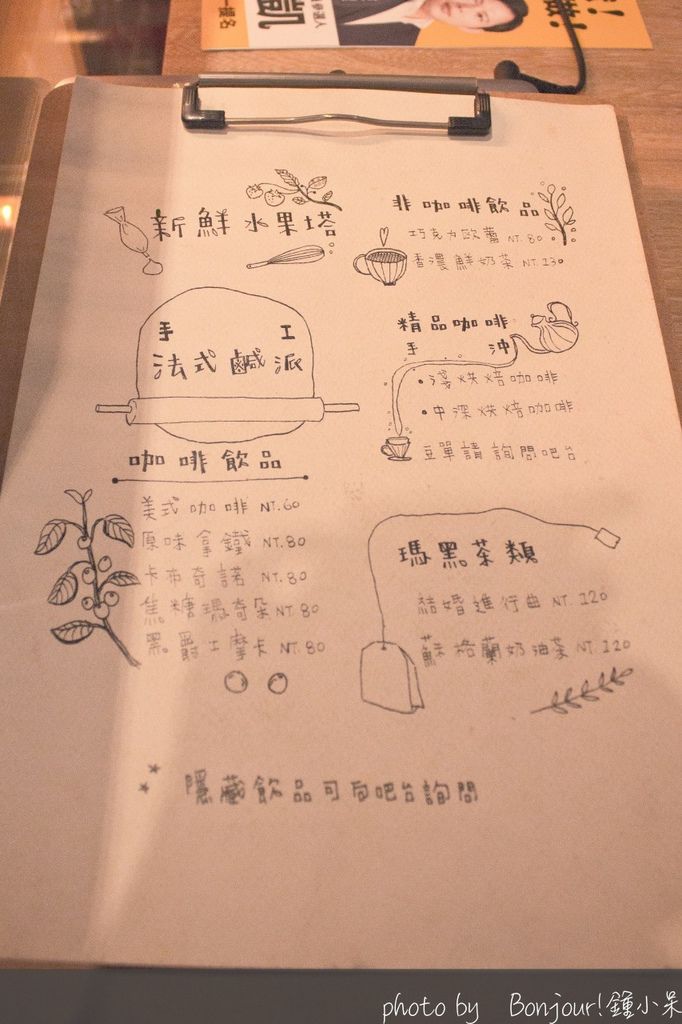 一擬名
凱
新鮮水果塔
手工
法式鹹派
咖啡飲品
美式咖啡 NT.60
原味拿鐵 NT.80
卡布奇諾 NT.80
焦糖瑪奇朵 NT 80
黑爵士摩卡 NT.80
非咖啡飲品
巧克力歐蕾 NT.80
香濃鮮奶茶 NT.130
精品咖啡
手沖
•淺烘焙咖啡
•中深烘焙咖啡
豆單請詢問吧台
瑪黑茶類
結婚進行曲 NT.120
蘇格蘭奶油茶 NT.120
隱藏飲品可向吧台詢問
photo by Bonjour!鍾小呆